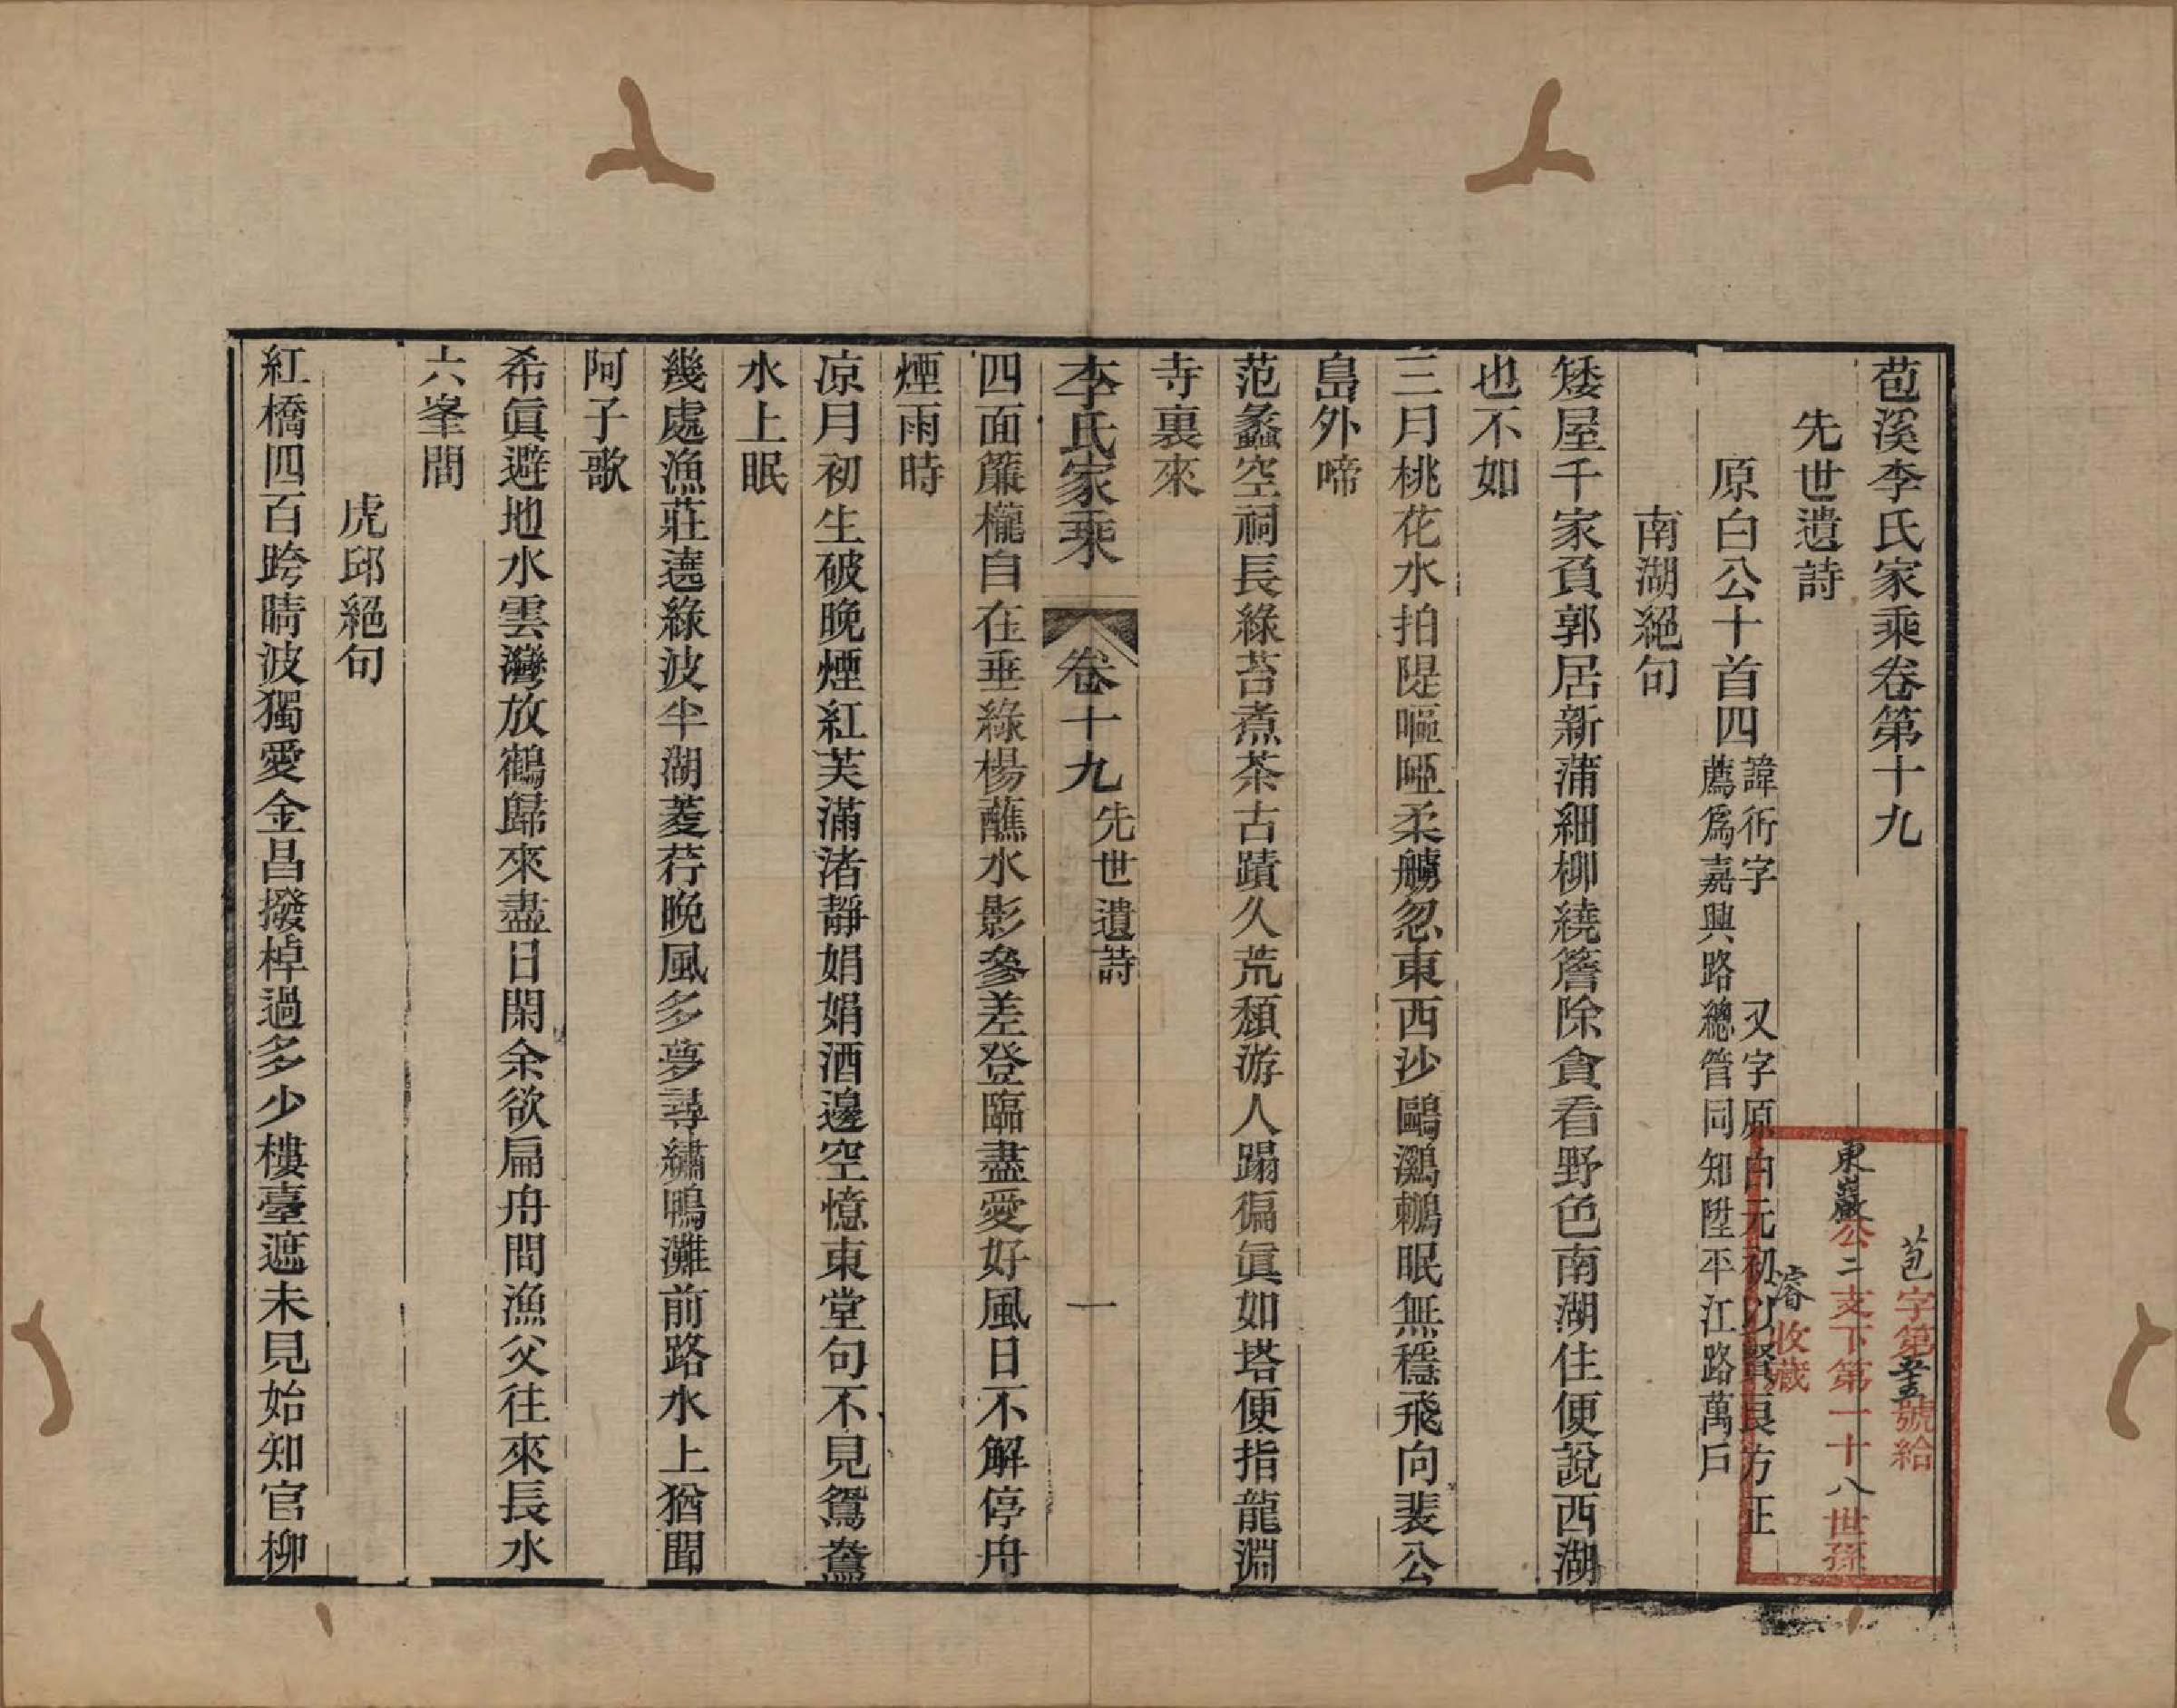 苞溪李氏家乘卷第十九
先世遺詩
原白公十首四
諱衎字　又字原白元初以賢良方正
薦爲嘉興路總管同知陞平江路萬戶
南湖絕句
矮屋千家負郭居新蒲細柳繞簷除貪看野色南湖住便說西湖
也不如
三月桃花水拍隄嘔啞柔艣忽東西沙鷗鸂鶒眠無穩飛向裴公
島外啼
范蠡空祠長綠苔煮茶古蹟久荒頹游人蹋徧眞如塔便指龍淵
寺裏來
李氏家乘　卷十九　先世遺詩　一
四面簾櫳自在垂綠楊蘸水影參差登臨盡愛好風日不解停舟
煙雨時
凉月初生破晚煙紅芙滿渚靜娟娟酒邊空憶東堂句不見鴛鴦
水上眠
幾處漁莊遶綠波半湖菱荇晚風多夢尋繡鴨灘前路水上猶聞
阿子歌
希眞避地水雲灣放鶴歸來盡日閑余欲扁舟問漁父往來長水
六峯間
虎邱絕句
紅橋四百跨晴波獨愛金昌撥棹過多少樓臺遮未見始知官柳
苞字第五十五號給
東巖公二支下第一十八世孫
濬收藏